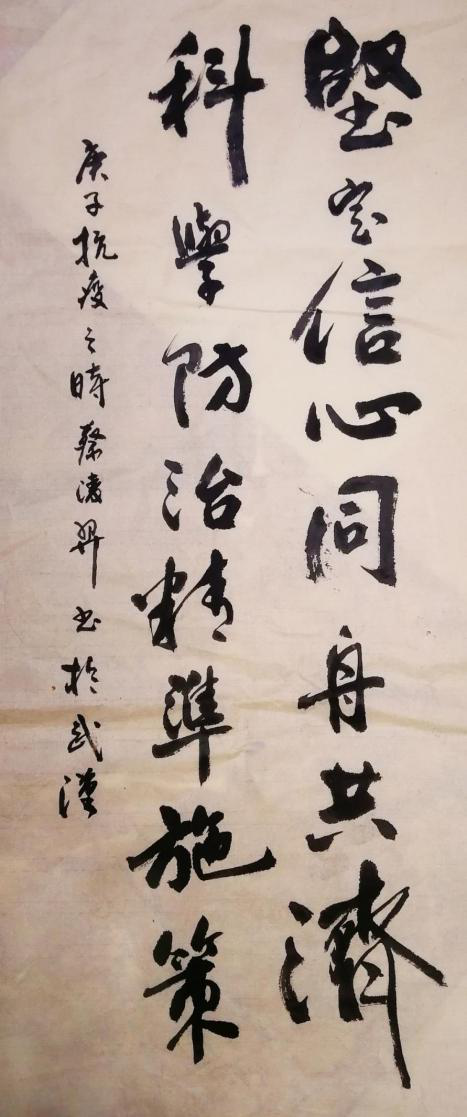 堅定信心同舟共濟
科學防治精準施策
庚子抗疫之時蔡凌羿書於武漢